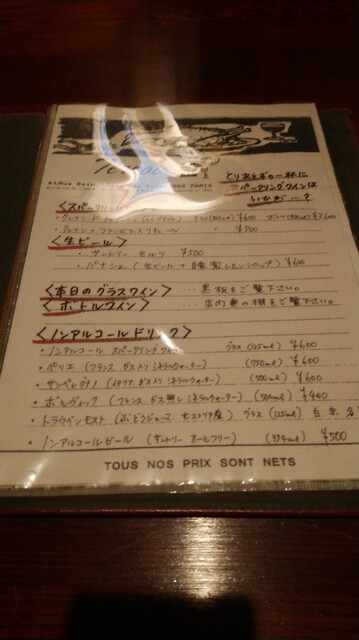 PARIS
とりあえずの一杯に
スパークリングワインは
いかが…?
<スパークリ
¥700
<生ビール>
・サントリー モルツ ¥500
・パナシェ (生ビール + 自家製レモンシロップ) ¥600
<本日のグラスワイン> … 黒板をご覧下さい。
<ボトルワイン> … 店内奥の棚をご覧下さい。
<ノンアルコールドリンク>
・ノンアルコール スパークリングワイン グラス (125ml) ¥600
・ペリエ (フランス ガス入りミネラルウォーター) (750ml) ¥600
・サンペレグリノ (イタリア ガス入りミネラルウォーター) ¥600
・ボルヴィック (フランス ガス無しミネラルウォーター) (500ml) ¥400
・トラウベンモスト (ぶどうジュース オーストリア産) グラス (125ml) 白・赤 各
・ノンアルコールビール (サントリー オールフリー) (334ml) ¥500
TOUS NOS PRIX SONT NETS